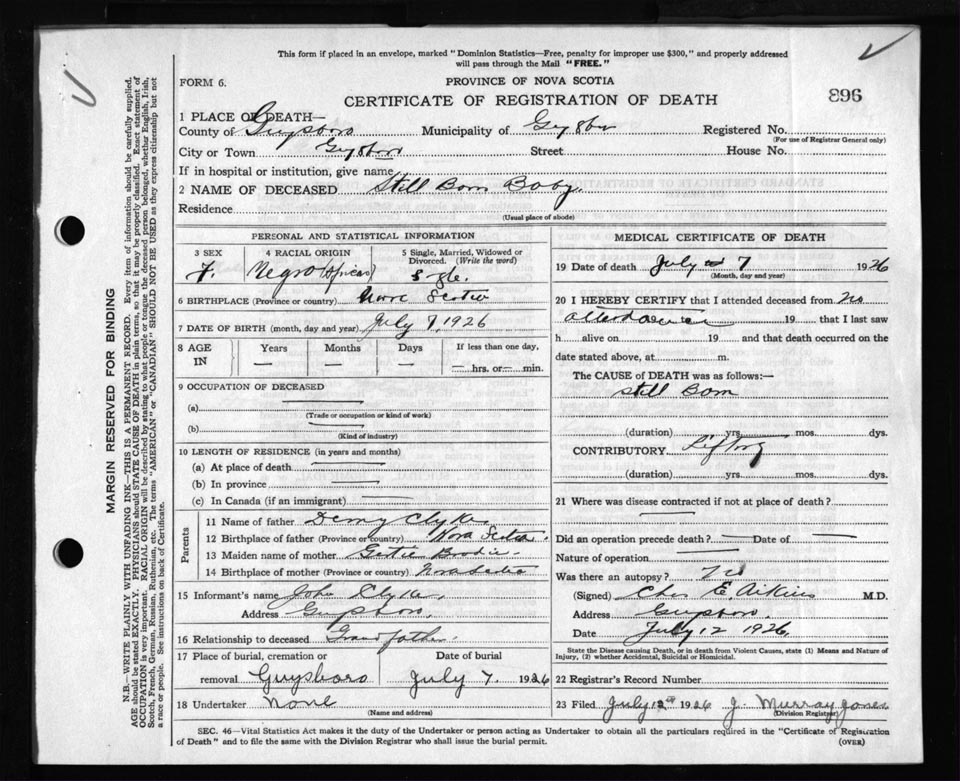 This form if placed in an envelope, marked "Dominion Statistics—Free, penalty for improper use $300," and properly addressed
will pass through the Mail "FREE."
FORM 6.
PROVINCE OF NOVA SCOTIA
CERTIFICATE OF REGISTRATION OF DEATH
896
1 PLACE OF DEATH—
County of Guysboro Municipality of Guysboro Registered No.
(For use of Registrar General only)
City or Town Guysboro Street House No.
If in hospital or institution, give name
2 NAME OF DECEASED Still Born Baby.
Residence
(Usual place of abode)
PERSONAL AND STATISTICAL INFORMATION
3 SEX
F.
4 RACIAL ORIGIN
Negro (African)
5 Single, Married, Widowed or Divorced. (Write the word)
Sgle.
6 BIRTHPLACE (Province or country) Nova Scotia
7 DATE OF BIRTH (month, day and year) July 7, 1926
8 AGE IN
Years Months Days If less than one day,
— — — — hrs. or — min.
9 OCCUPATION OF DECEASED
(a)
(Trade or occupation or kind of work)
(b)
(Kind of industry)
10 LENGTH OF RESIDENCE (in years and months)
(a) At place of death
(b) In province
(c) In Canada (if an immigrant)
Parents
11 Name of father Clyke
12 Birthplace of father (Province or country) Nova Scotia.
13 Maiden name of mother
14 Birthplace of mother (Province or country) Nova Scotia
15 Informant's name John Clyke
Address Guysboro.
16 Relationship to deceased Grandfather.
17 Place of burial, cremation or Date of burial
removal Guysboro July 7. 1926
18 Undertaker None
(Name and address)
MEDICAL CERTIFICATE OF DEATH
19 Date of death July 7 1926
(Month, day and year)
20 I HEREBY CERTIFY that I attended deceased from no
attendance 19 that I last saw
h alive on 19 and that death occurred on the
date stated above, at m.
The CAUSE of DEATH was as follows:—
Still Born
(duration) yrs. mos. dys.
CONTRIBUTORY Lifting
(duration) yrs. mos. dys.
21 Where was disease contracted if not at place of death?
Did an operation precede death? — Date of —
Nature of operation
Was there an autopsy? No
(Signed) Chas E. Aikins M.D.
Address Guysboro.
Date July 12 1926.
State the Disease causing Death, or in death from Violent Causes, state (1) Means and Nature of
Injury, (2) whether Accidental, Suicidal or Homicidal.
22 Registrar's Record Number
23 Filed July 12th 1926 J. Murray Jones
(Division Registrar)
SEC. 46—Vital Statistics Act makes it the duty of the Undertaker or person acting as Undertaker to obtain all the particulars required in the "Certificate of Registration
of Death" and to file the same with the Division Registrar who shall issue the burial permit.
(OVER)
MARGIN RESERVED FOR BINDING
N.B.—WRITE PLAINLY WITH UNFADING INK—THIS IS A PERMANENT RECORD. Every item of information should be carefully supplied.
AGE should be stated EXACTLY. PHYSICIANS should STATE CAUSE OF DEATH in plain terms, so that it may be properly classified. Exact statement of
OCCUPATION is very important. RACIAL ORIGIN will be described by stating to what people or tongue the deceased person belonged, whether English, Irish,
Scotch, French, German, Russian, Ruthenian, etc. The terms "AMERICAN" or "CANADIAN" SHOULD NOT BE USED as they express citizenship but not
a race or people. See instructions on back of Certificate.